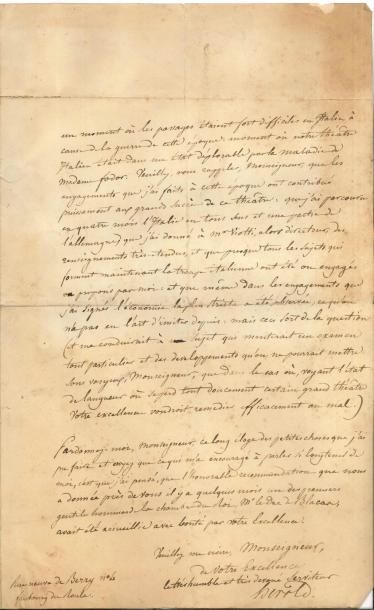 un moment où les passages étaient fort difficiles en Italie, à
cause de la guerre de cette époque; moment où notre théâtre
Italien était dans un état déplorable par la maladie de
Madame fodor. Veuillez, vous rappeler, Monseigneur, que les
engagements que j'ai faits à cette époque ont contribué
puissament aux grands succès de ce théâtre: que j'ai parcouru
en quatre mois l'Italie en tous sens et une partie de
l'allemagne; que j'ai donné à Mr Viotti, alors directeur, des
renseignements très étendus, et que presque tous les sujets qui
forment maintenant la troupe italienne ont été ou engagés
ou proposés par moi: et que même dans les engagements que
j'ai signés l'économie la plus stricte a été observée, ce qu'on
n'a pas eu l'art d'imiter depuis: mais ceci sort de la question
(et me conduirait à un sujet qui mériterait un examen
tout particulier et des développements qu'on ne pourrait mettre
sous vos yeux, Monseigneur, que dans le cas où, voyant l'état
de langueur où se perd tout doucement certain grand théâtre
Votre excellence voudroit remedier efficacement au mal.)
Pardonnez-moi, Monseigneur, ce long éloge des petites choses que j'ai
pu faire et croyez que ce qui m'a encouragé à parler si longtems de
moi, c'est que j'ai pensé, que l'honorable recommandation que nous
a donnée près de vous il y a quelques mois un des premiers
gentils hommes de la chambre du Roi, Mr le Duc de Blacas,
avait été accueillie avec bonté par votre Excellence.
Veuillez me croire, Monseigneur,
de Votre Excellence
le très humble et très dévoué Serviteur
Herold.
Rue neuve de Berry no 4
faubourg du Roule.